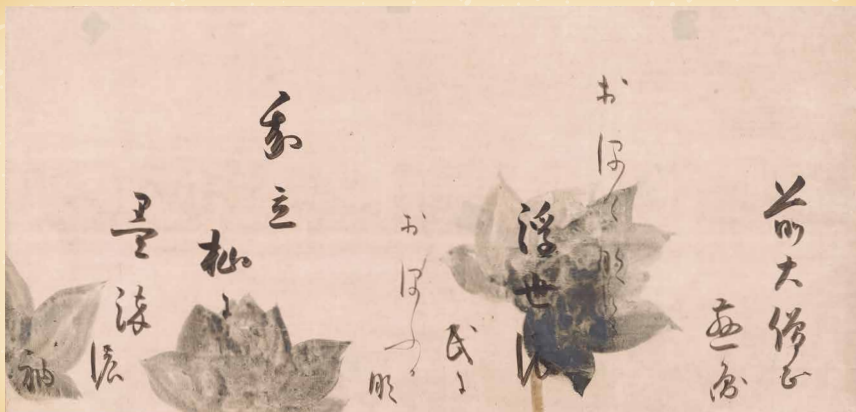 前大僧正
慈圓
おほけなく
浮世の
民に
おほふ哉
我立
杣に
墨染
の
袖